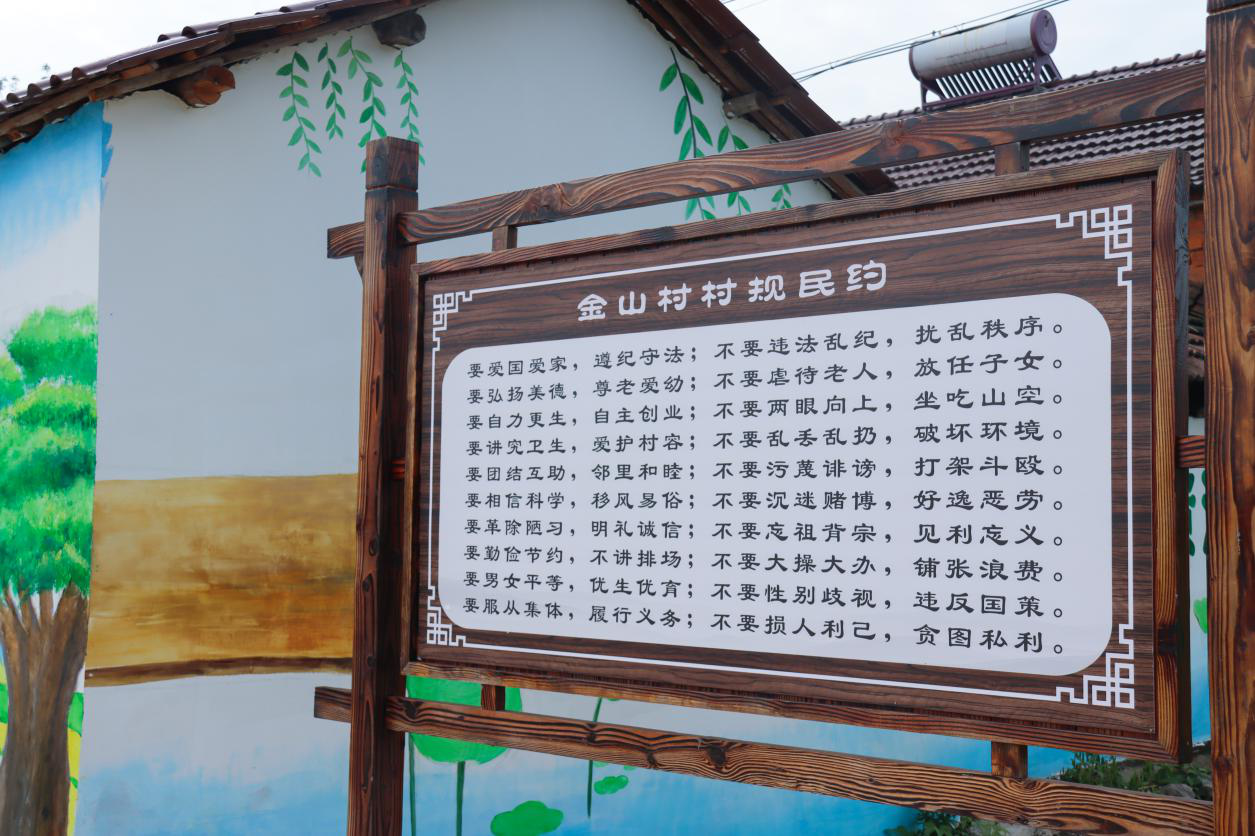 金山村村规民约
要爱国爱家，遵纪守法；不要违法乱纪，扰乱秩序。
要弘扬美德，尊老爱幼；不要虐待老人，放任子女。
要自力更生，自主创业；不要两眼向上，坐吃山空。
要讲究卫生，爱护村容；不要乱丢乱扔，破坏环境。
要团结互助，邻里和睦；不要污蔑诽谤，打架斗殴。
要相信科学，移风易俗；不要沉迷赌博，好逸恶劳。
要革除陋习，明礼诚信；不要忘祖背宗，见利忘义。
要勤俭节约，不讲排场；不要大操大办，铺张浪费。
要男女平等，优生优育；不要性别歧视，违反国策。
要服从集体，履行义务；不要损人利己，贪图私利。